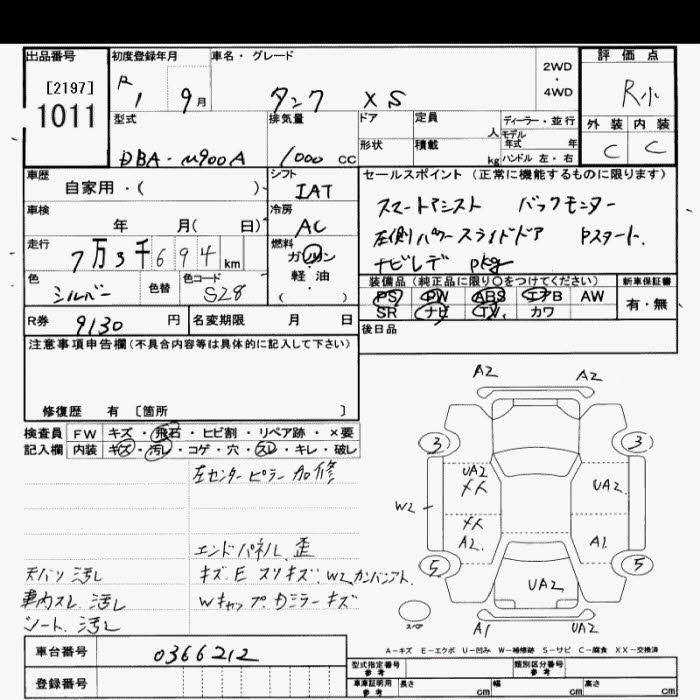 出品番号
[2197]
1011
初度登録年月
R 1 9月
車名・グレード
タンク XS
2WD
・
4WD
評価点
R小
外装 内装
C C
型式
DBA-M900A
排気量
1000 cc
ドア
形状
定員 人
積載 kg
ディーラー・並行
モデル年式 年
ハンドル 左・右
車歴
自家用・( )
シフト
IAT
車検
年 月( 日)
冷房
AC
走行
7万3千694km
燃料
ガソリン
軽・油
( )
色
シルバー
色替
色コード
S28
セールスポイント(正常に機能するものに限ります)
スマートアシスト バックモニター
左側パワースライドドア Pスタート.
ナビレデ Pkg
装備品(純正品に限り〇をつけてください)
PS PW ABS エアB AW
SR ナビ TV カワ
新車保証書
有・無
R券 9130円
名変期限 月 日
後日品
注意事項申告欄(不具合内容等は具体的に記入して下さい)
修復歴 有 [箇所 ]
検査員記入欄
FW キズ・飛石・ヒビ割・リペア跡・×要
内装 キズ・汚レ・コゲ・穴・スレ・キレ・破レ
左センターピラー加修
エンドパネル 歪
キズ E スリキズ W2
天バリ 汚レ
車内スレ 汚レ
シート 汚レ
Wキャップ Dミラーキズ
A2 A2
3 3
UA2 UA2
XX
W2
XX
A2 A1
5 5
UA2
スペア
A1 UA2
A-キズ E-エクボ U-凹み W-補修跡 S-サビ C-腐食 XX-交換済
車台番号 0366212
登録番号
型式指定番号
参考
類別区分番号
参考
車庫証明用
参考
長さ cm 幅 cm 高さ cm